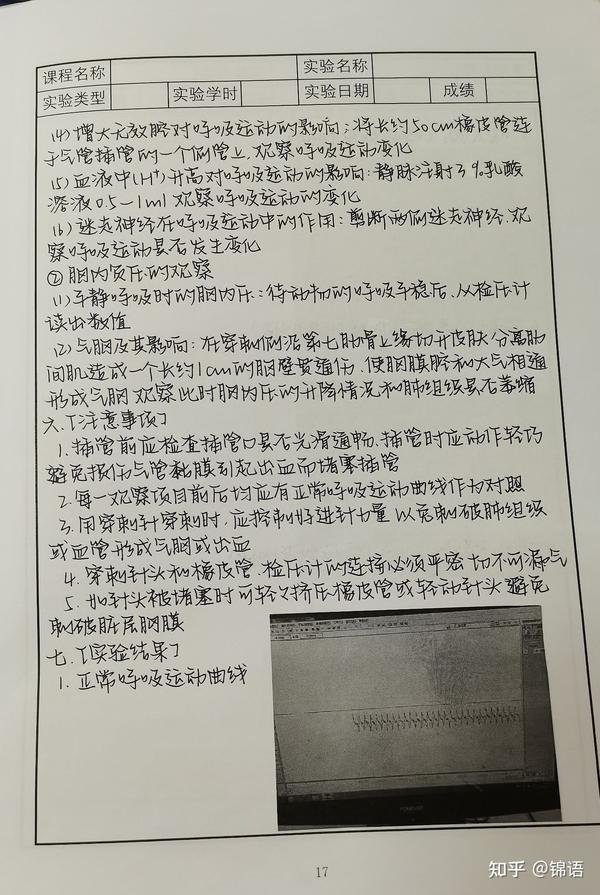 课程名称 实验名称
实验类型 实验学时 实验日期 成绩
(4)增大无效腔对呼吸运动的影响:将长约50cm橡皮管连
于气管插管的一个侧管上,观察呼吸运动变化
(5)血液中(H+)升高对呼吸运动的影响:静脉注射3%乳酸
溶液0.5-1ml观察呼吸运动的变化
(6)迷走神经在呼吸运动中的作用:剪断两侧迷走神经,观
察呼吸运动是否发生变化
②胸内负压的观察
(1)平静呼吸时的胸内压:待动物的呼吸平稳后,从检压计
读出数值
(2)气胸及其影响:在穿刺侧沿第七肋骨上缘切开皮肤分离肋
间肌造成一个长约1cm的胸壁贯通伤,使胸膜腔和大气相通
形成气胸 观察此时胸内压的升降情况和肺组织是否萎缩
六、[注意事项]
1.插管前应检查插管口是否光滑通畅,插管时应动作轻巧
避免损伤气管黏膜引起出血而堵塞插管
2.每一观察项目前后均应有正常呼吸运动曲线作为对照
3.用穿刺针穿刺时,应控制好进针力量以免刺破肺组织
或血管形成气胸或出血
4.穿刺针头和橡皮管、检压计的连接必须严密切不可漏气
5.如针头被堵塞时可轻轻挤压橡皮管或轻动针头避免
刺破脏层胸膜
七、[实验结果]
1.正常呼吸运动曲线
17
知乎 @锦语